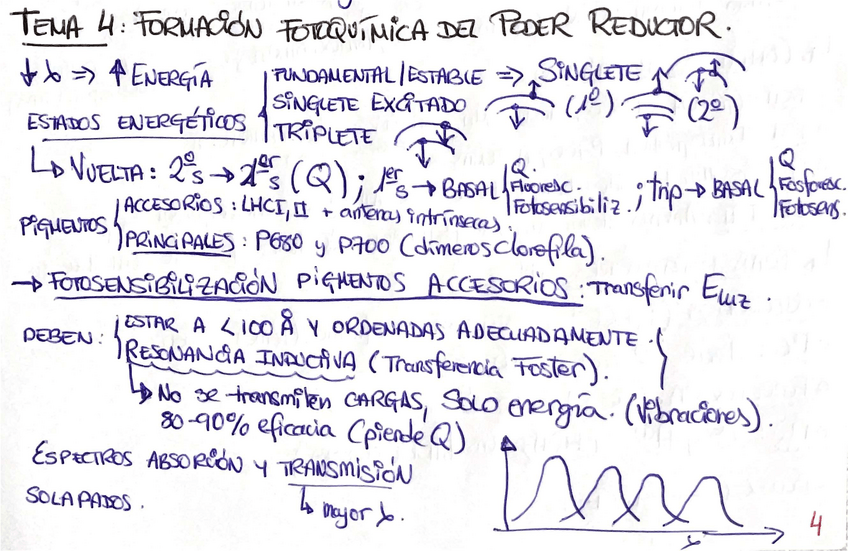 TEMA 4: FORMACIÓN FOTOQUÍMICA DEL PODER REDUCTOR.
↓ λ => ↑ ENERGÍA
ESTADOS ENERGÉTICOS
FUNDAMENTAL/ESTABLE => SINGLETE
SINGLETE EXCITADO (1º) (2º)
TRIPLETE
↳ VUELTA: 2ºs → 1ers (Q) ; 1ers → BASAL
Q.
Fluoresc.
Fotosensibiliz.
; trip → BASAL
Q
Fosforesc.
Fotosens.
PIGMENTOS
ACCESORIOS: LHCI, II + antenas intrínsecas.
PRINCIPALES: P680 y P700 (dímeros clorofila).
→ FOTOSENSIBILIZACIÓN PIGMENTOS ACCESORIOS: transferir Eluz.
DEBEN:
ESTAR A <100 Å Y ORDENADAS ADECUADAMENTE.
RESONANCIA INDUCTIVA (Transferencia Foster).
↳ No se transmiten CARGAS, Solo energía. (Vibraciones).
80-90% eficacia (pierde Q)
ESPECTROS ABSORCIÓN Y TRANSMISIÓN
SOLAPADOS.
↳ mayor λ.
λ
4